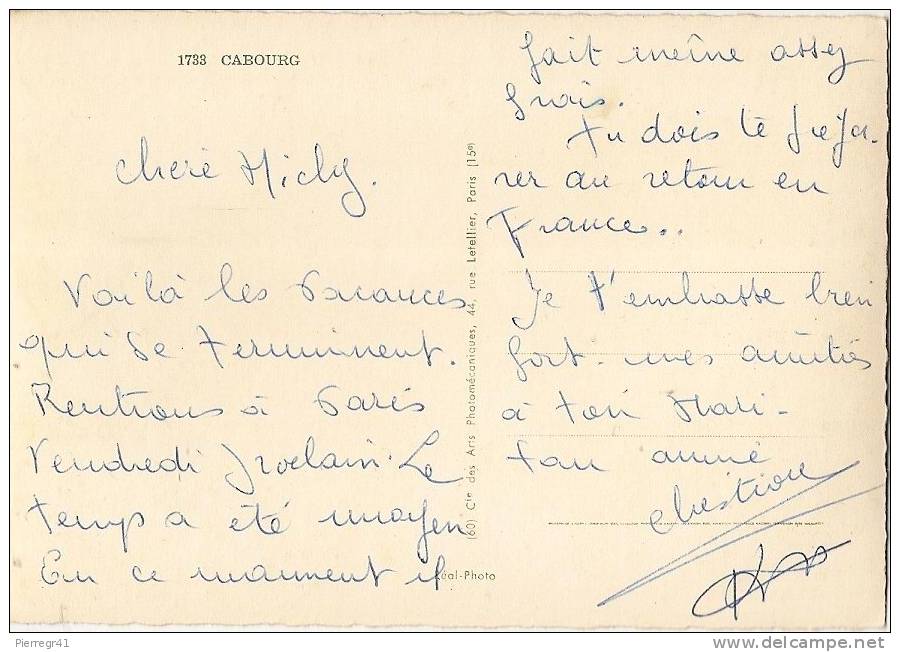 1733 CABOURG
Chère Micky.
Voilà les vacances
qui se terminent.
Rentrons à Paris
Vendredi prochain. Le
temps a été moyen
En ce moment il
fait même assez
frais.
Tu dois te prépa-
rer au retour en
France..
Je t'embrasse bien
fort. mes amitiés
à ton Mari -
ton amie
(60) Cie des Arts Photomécaniques, 44, rue Letellier, Paris (15e)
Réal-Photo
Pierregr41
www.delcampe.net